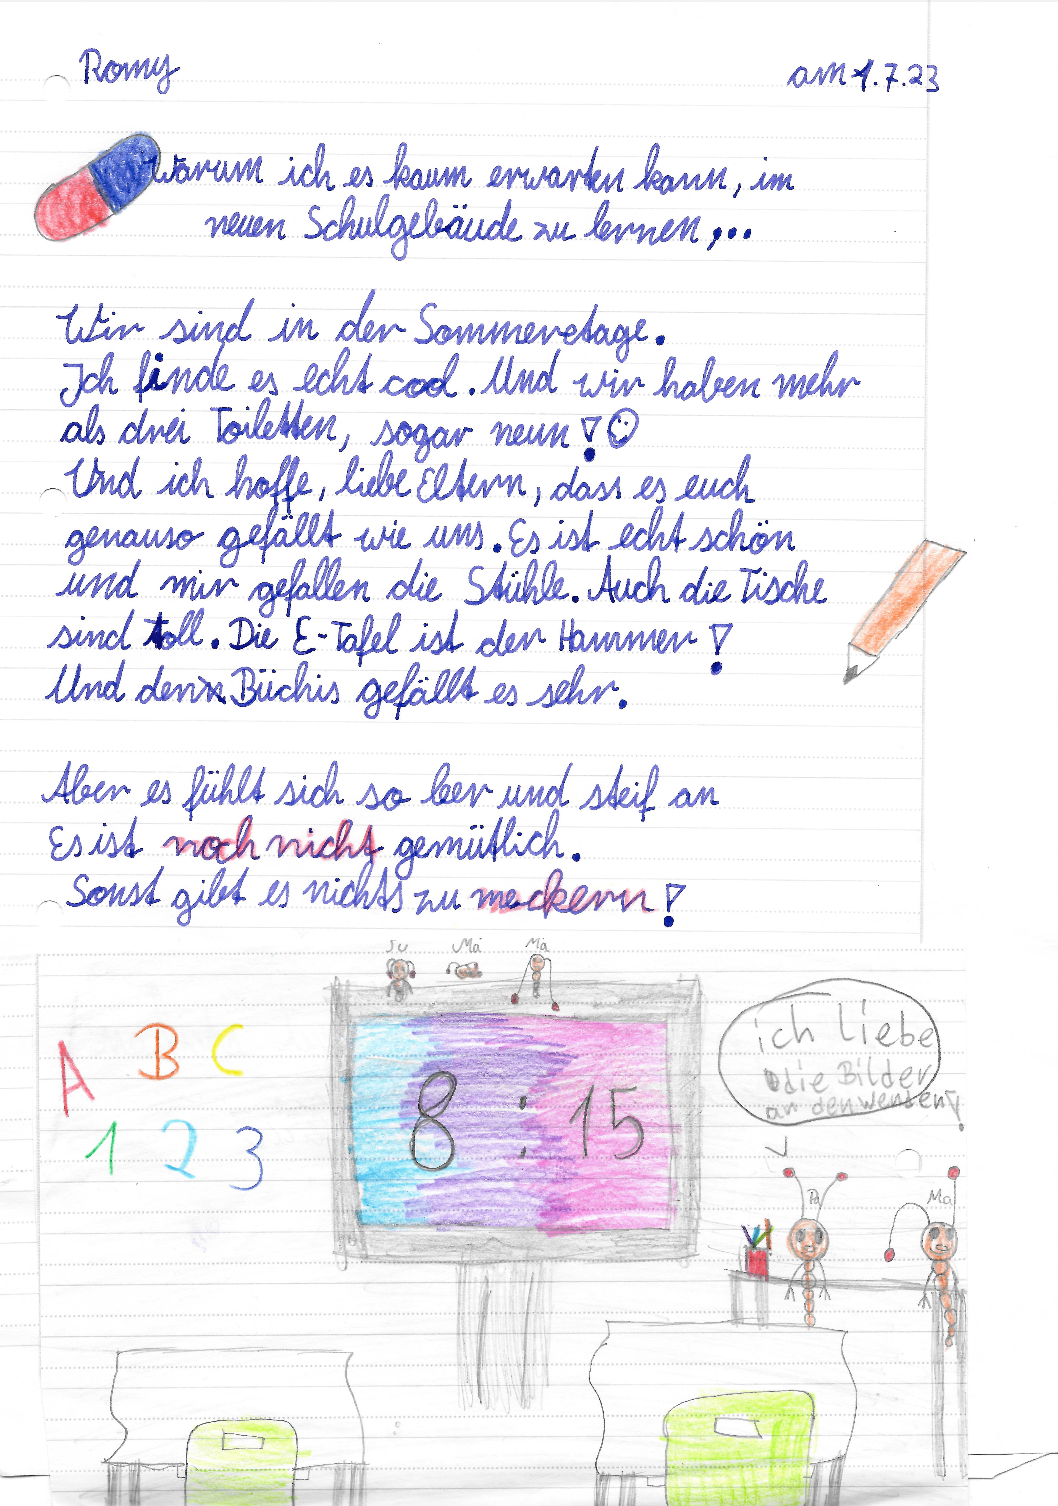 Romy
am 1.7.23
Warum ich es kaum erwarten kann, im
neuen Schulgebäude zu lernen,...
Wir sind in der Sommeretage.
Ich finde es echt cool. Und wir haben mehr
als drei Toiletten, sogar neun!
Und ich hoffe, liebe Eltern, dass es euch
genauso gefällt wie uns. Es ist echt schön
und mir gefallen die Stühle. Auch die Tische
sind toll. Die E-Tafel ist der Hammer!
Und den Büchis gefällt es sehr.
Aber es fühlt sich so leer und steif an
Es ist noch nicht gemütlich.
Sonst gibt es nichts zu meckern!
Ju Mä Ma
A B C
1 2 3
8:15
ich liebe
die Bilder
an den wenden!
Pa Ma